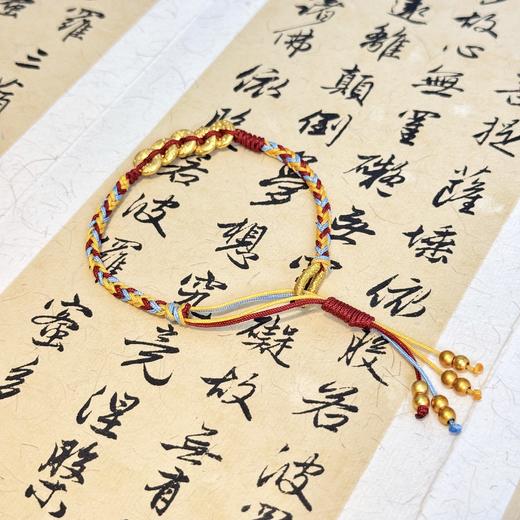 菩提薩埵依般若波羅
故心無罣礙無礙故無有
遠離顛倒夢想究竟涅槃
諸佛依般若波羅蜜多
羅三藐